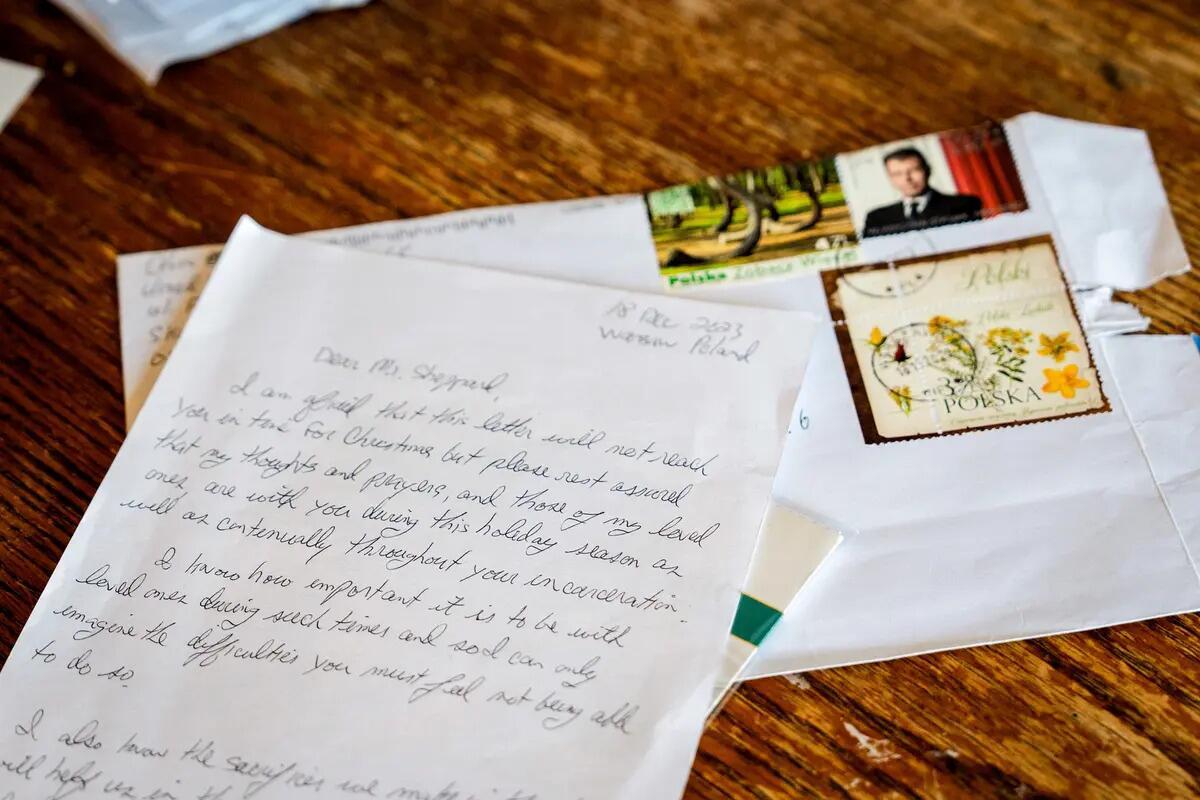 Polska
Polska
POLSKA
18 Dec 2023
Warsaw Poland
Dear Mr. Sheppard,
I am afraid that this letter will not reach
you in time for Christmas but please rest assured
that my thoughts and prayers, and those of my loved
ones, are with you during this holiday season as
well as continually throughout your incarceration.
I know how important it is to be with
loved ones during such times and so I can only
imagine the difficulties you must feel not being able
to do so.
I also know the sacrifices we make in
will help us in